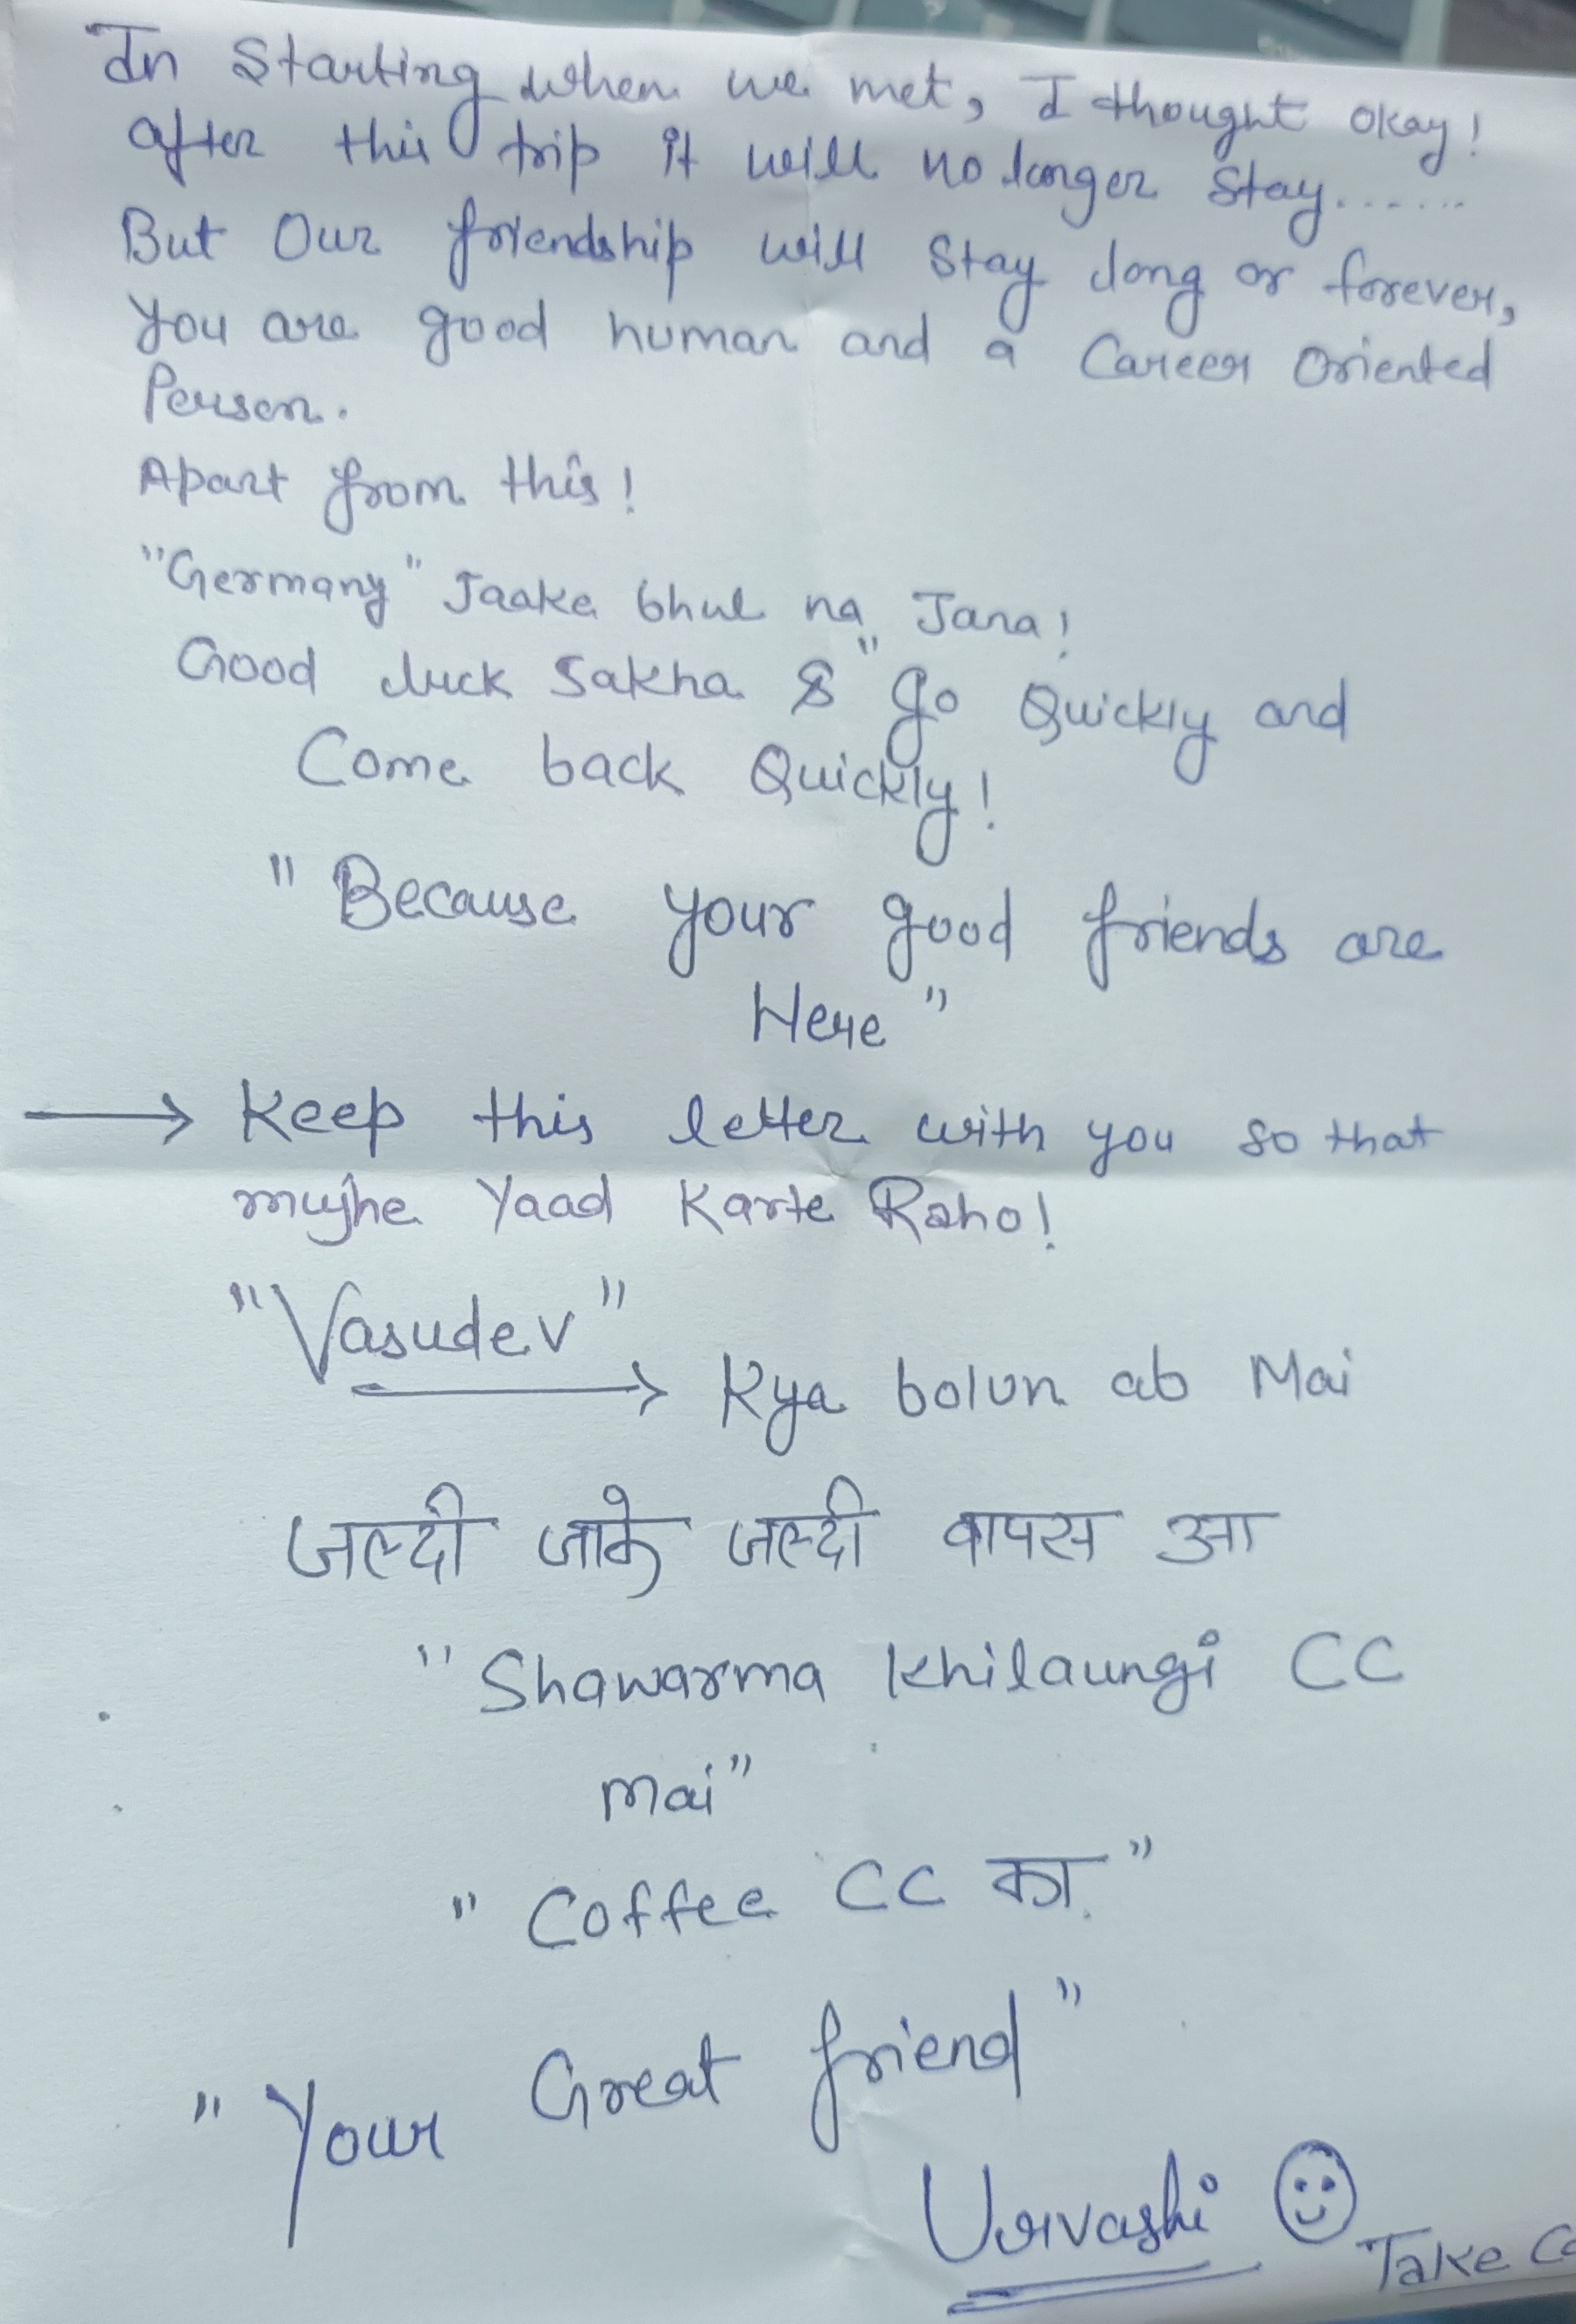 In Starting when we met, I thought okay!
after this trip it will no longer stay.......
But Our friendship will stay long or forever,
You are good human and a Career Oriented
Person.
Apart from this!
"Germany" Jaake bhul na Jana!
Good luck Sakha & "Go Quickly and
Come back Quickly!
"Because your good friends are
Here"
→ Keep this letter with you so that
mujhe Yaad Karte Raho!
"Vasudev"
→ Kya bolun ab Mai
जल्दी जाके जल्दी वापस आ
"Shawarma khilaungi CC
mai"
"Coffee CC का"
"Your Great friend"
Urvashi ☺
Take